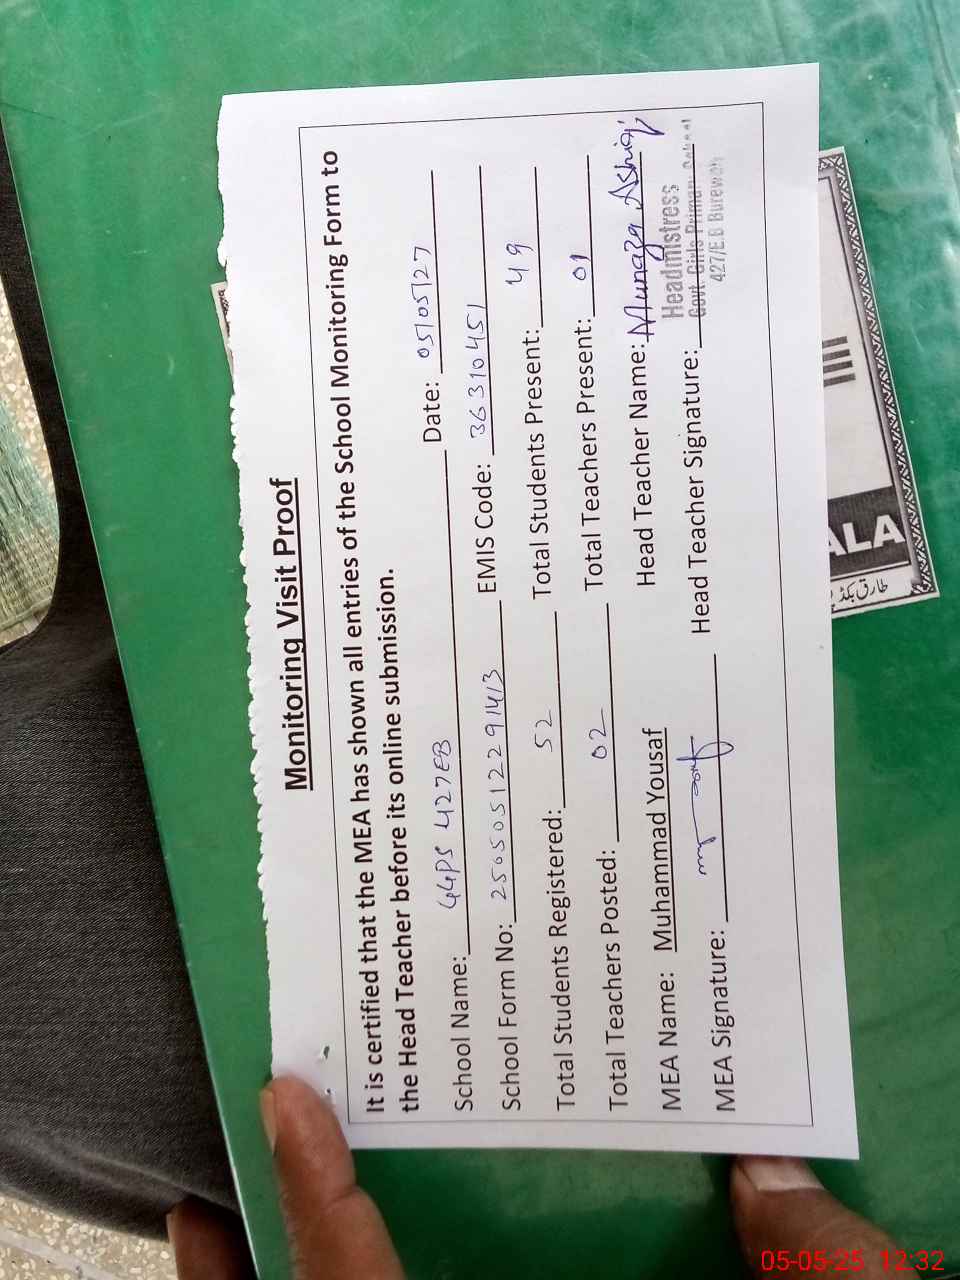 Monitoring Visit Proof
It is certified that the MEA has shown all entries of the School Monitoring Form to
the Head Teacher before its online submission.
School Name: GGPS 427EB Date: 05/05/27
School Form No: 250505122291413 EMIS Code: 36310451
Total Students Registered: 52 Total Students Present: 49
Total Teachers Posted: 02 Total Teachers Present: 01
MEA Name: Muhammad Yousaf Head Teacher Name: Munaza Ashiq
MEA Signature: Head Teacher Signature:
Headmistress
Govt. Girls Primary School
427/E.B Burewala
ALA
طارق بکڈ
05-05-25 12:32